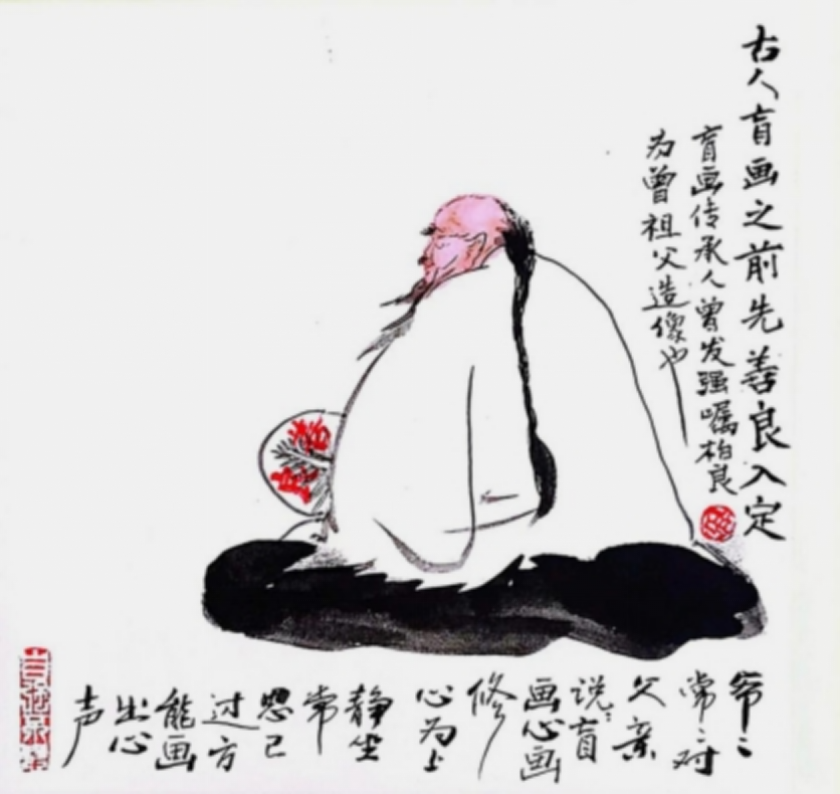 古人盲画之前先善良入定
盲画传承人曾发强嘱柏良
为曾祖父造像也
爷〻
常〻对
父亲
说：盲
画心画
修
心为上
静坐
常
思己
过方
能画
出心
声